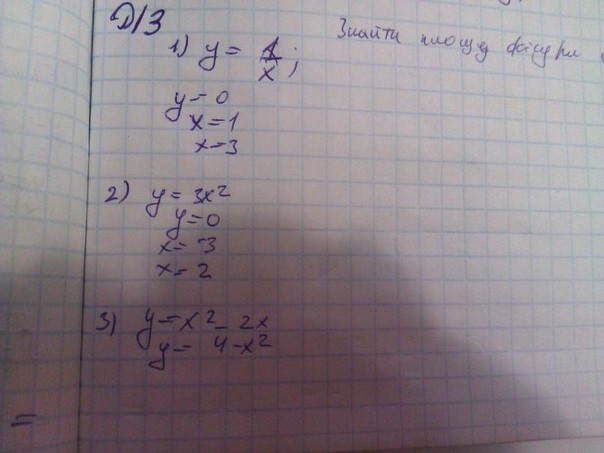 Д/З
Знайти площу фігури
1) y = 1/x ;
y = 0
x = 1
x = 3
2) y = 3x²
y = 0
x = -3
x = 2
3) y = x² - 2x
y = 4 - x²
=